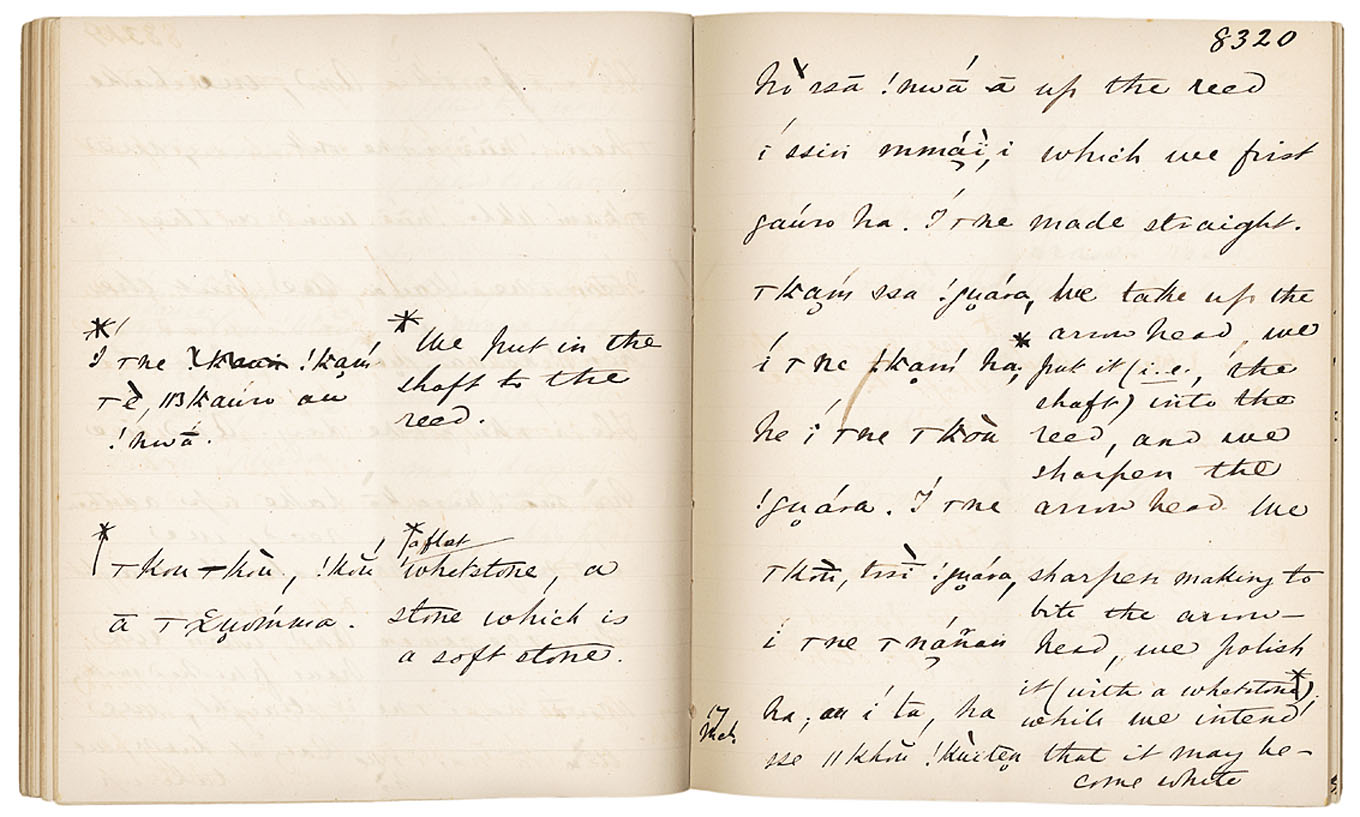 * I ͳne !kạḿ
ͳè, ‖3kaúrо au
!nwā́.
* We put in the
shaft to the
reed.
* ͳkou ͳkòu, !kóu
ā ͳχụómma.
* a flat
whetstone, a
stone which is
a soft stone.
8320
hì ssā !nwā́ ā up the reed
í ssin mmạ́ï, i which we first
gaúro ha. Í ͳne made straight.
ͳkạḿ ssa !gụára, We take up the
arrow head, we
í ͳne !kạḿ ha, * put it (i.e., the
shaft) into the
he í ͳne ͳkòu reed, and we
sharpen the
!gụára. Í ͳne arrow head. We
ͳkòu, tssì !gụára, sharpen making to
bite the arrow–
i ͳne head, we polish
it (with a whetstone *),
17 Mch. ha; au í ta, ha while we intend
sse ‖khóu that it may be–
come white